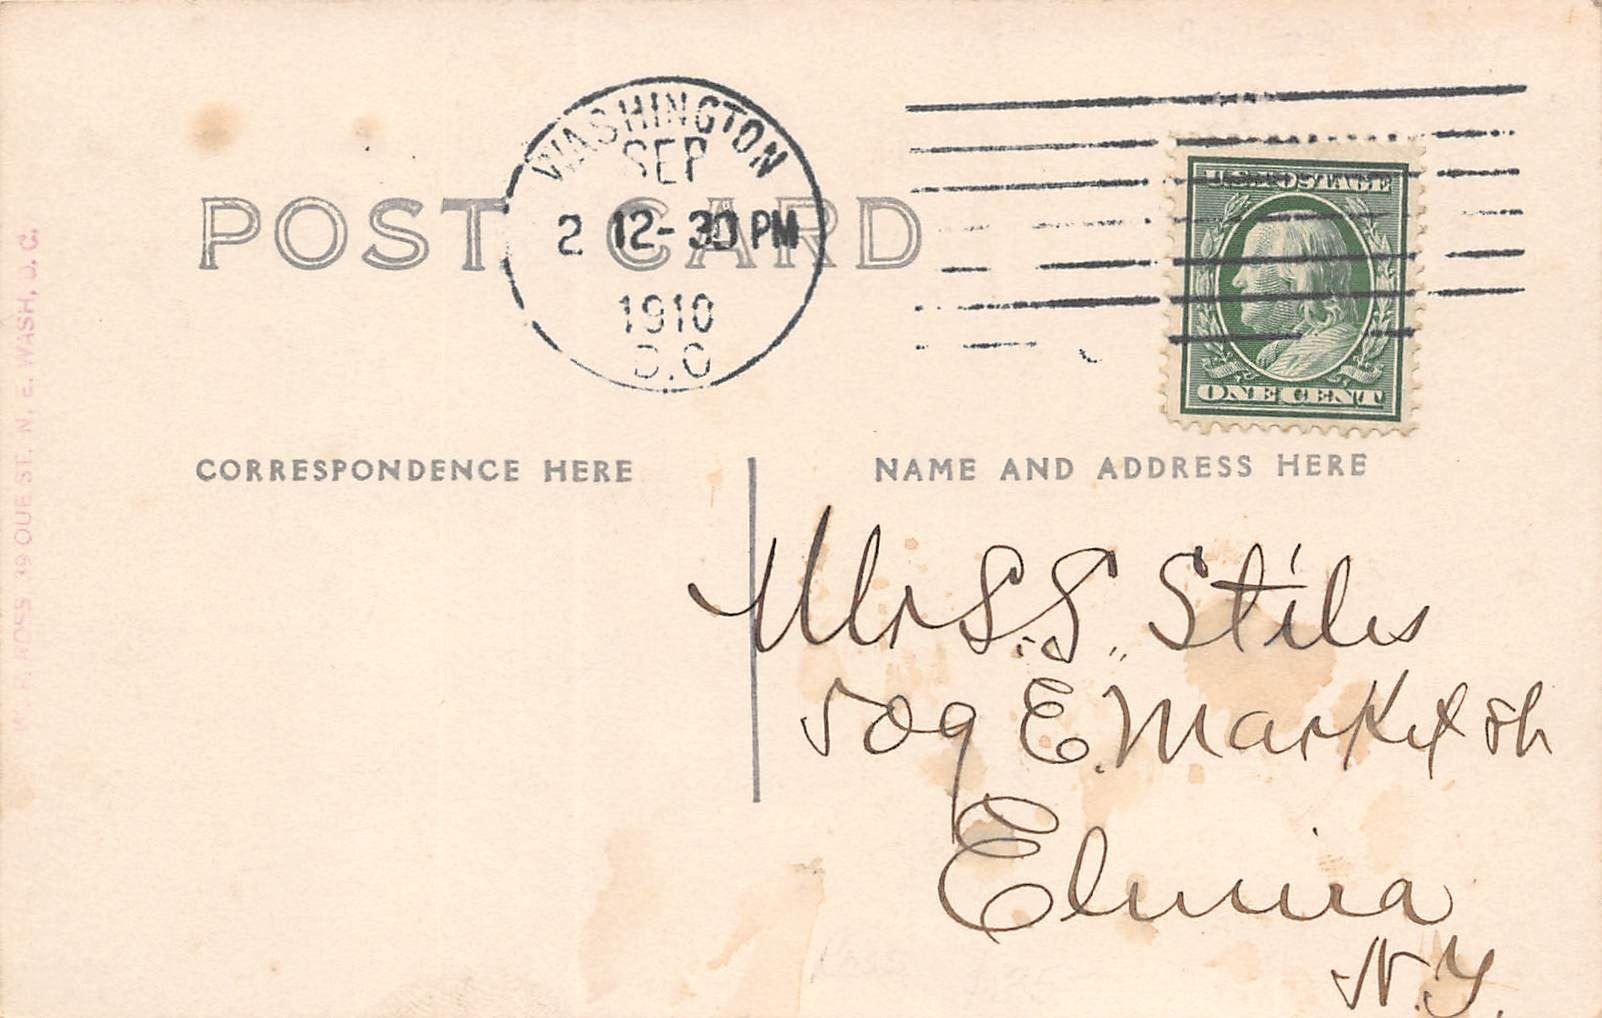 WASHINGTON
SEP
2 12-30 PM
1910
D.C
U.S. POSTAGE
ONE CENT
POST CARD
CORRESPONDENCE HERE
NAME AND ADDRESS HERE
Mr S. S. Stiles
509 E. Market St
Elmira
N.Y.
ROSS 39 QUE ST. N. E. WASH, D. C.